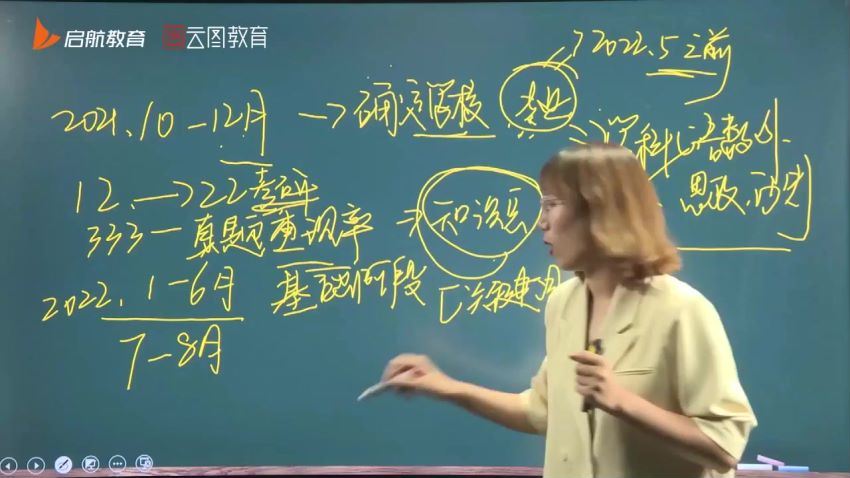 启航教育 云图教育
→2022.5之前
2021.10-12月 →确定院校 专业
12.→22考研
333-真题重现率→知识点
思政、
2022.1-6月 基础阶段
7-8月